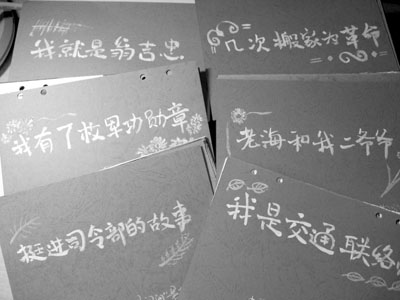 我就是翁吉忠
几次搬家为革命
我有了救军功勋章
老海和我二爷爷
挺进司令部的故事
我是交通联络